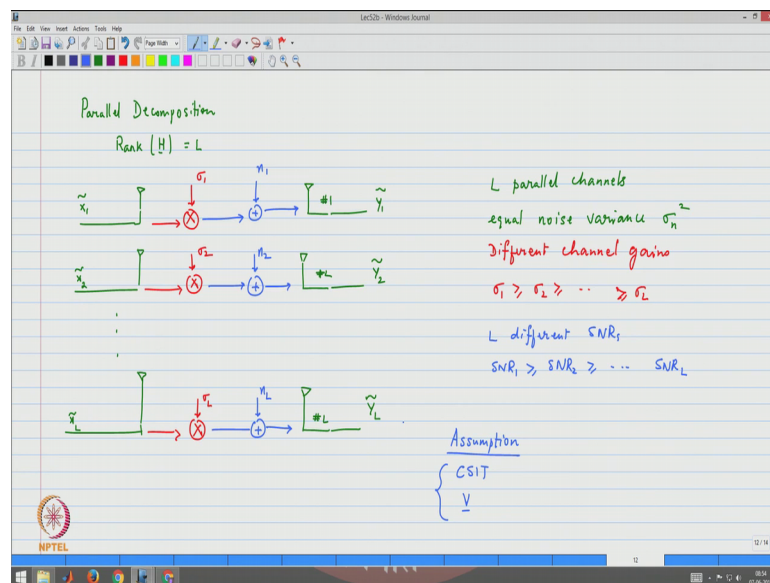 Lec52b - Windows Journal
File Edit View Insert Actions Tools Help
Page Width
B I
Parallel Decomposition
Rank (H) = L
x̃1 σ1 n1 #1 ỹ1
x̃2 σ2 n2 #2 ỹ2
x̃L σL nL #L ỹL
L parallel channels
equal noise variance σn²
Different channel gains
σ1 ≥ σ2 ≥ ·· ≥ σL
L different SNRs
SNR1 ≥ SNR2 ≥ ··· SNRL
Assumption
CSIT
V
NPTEL
12 / 14
12
08:54